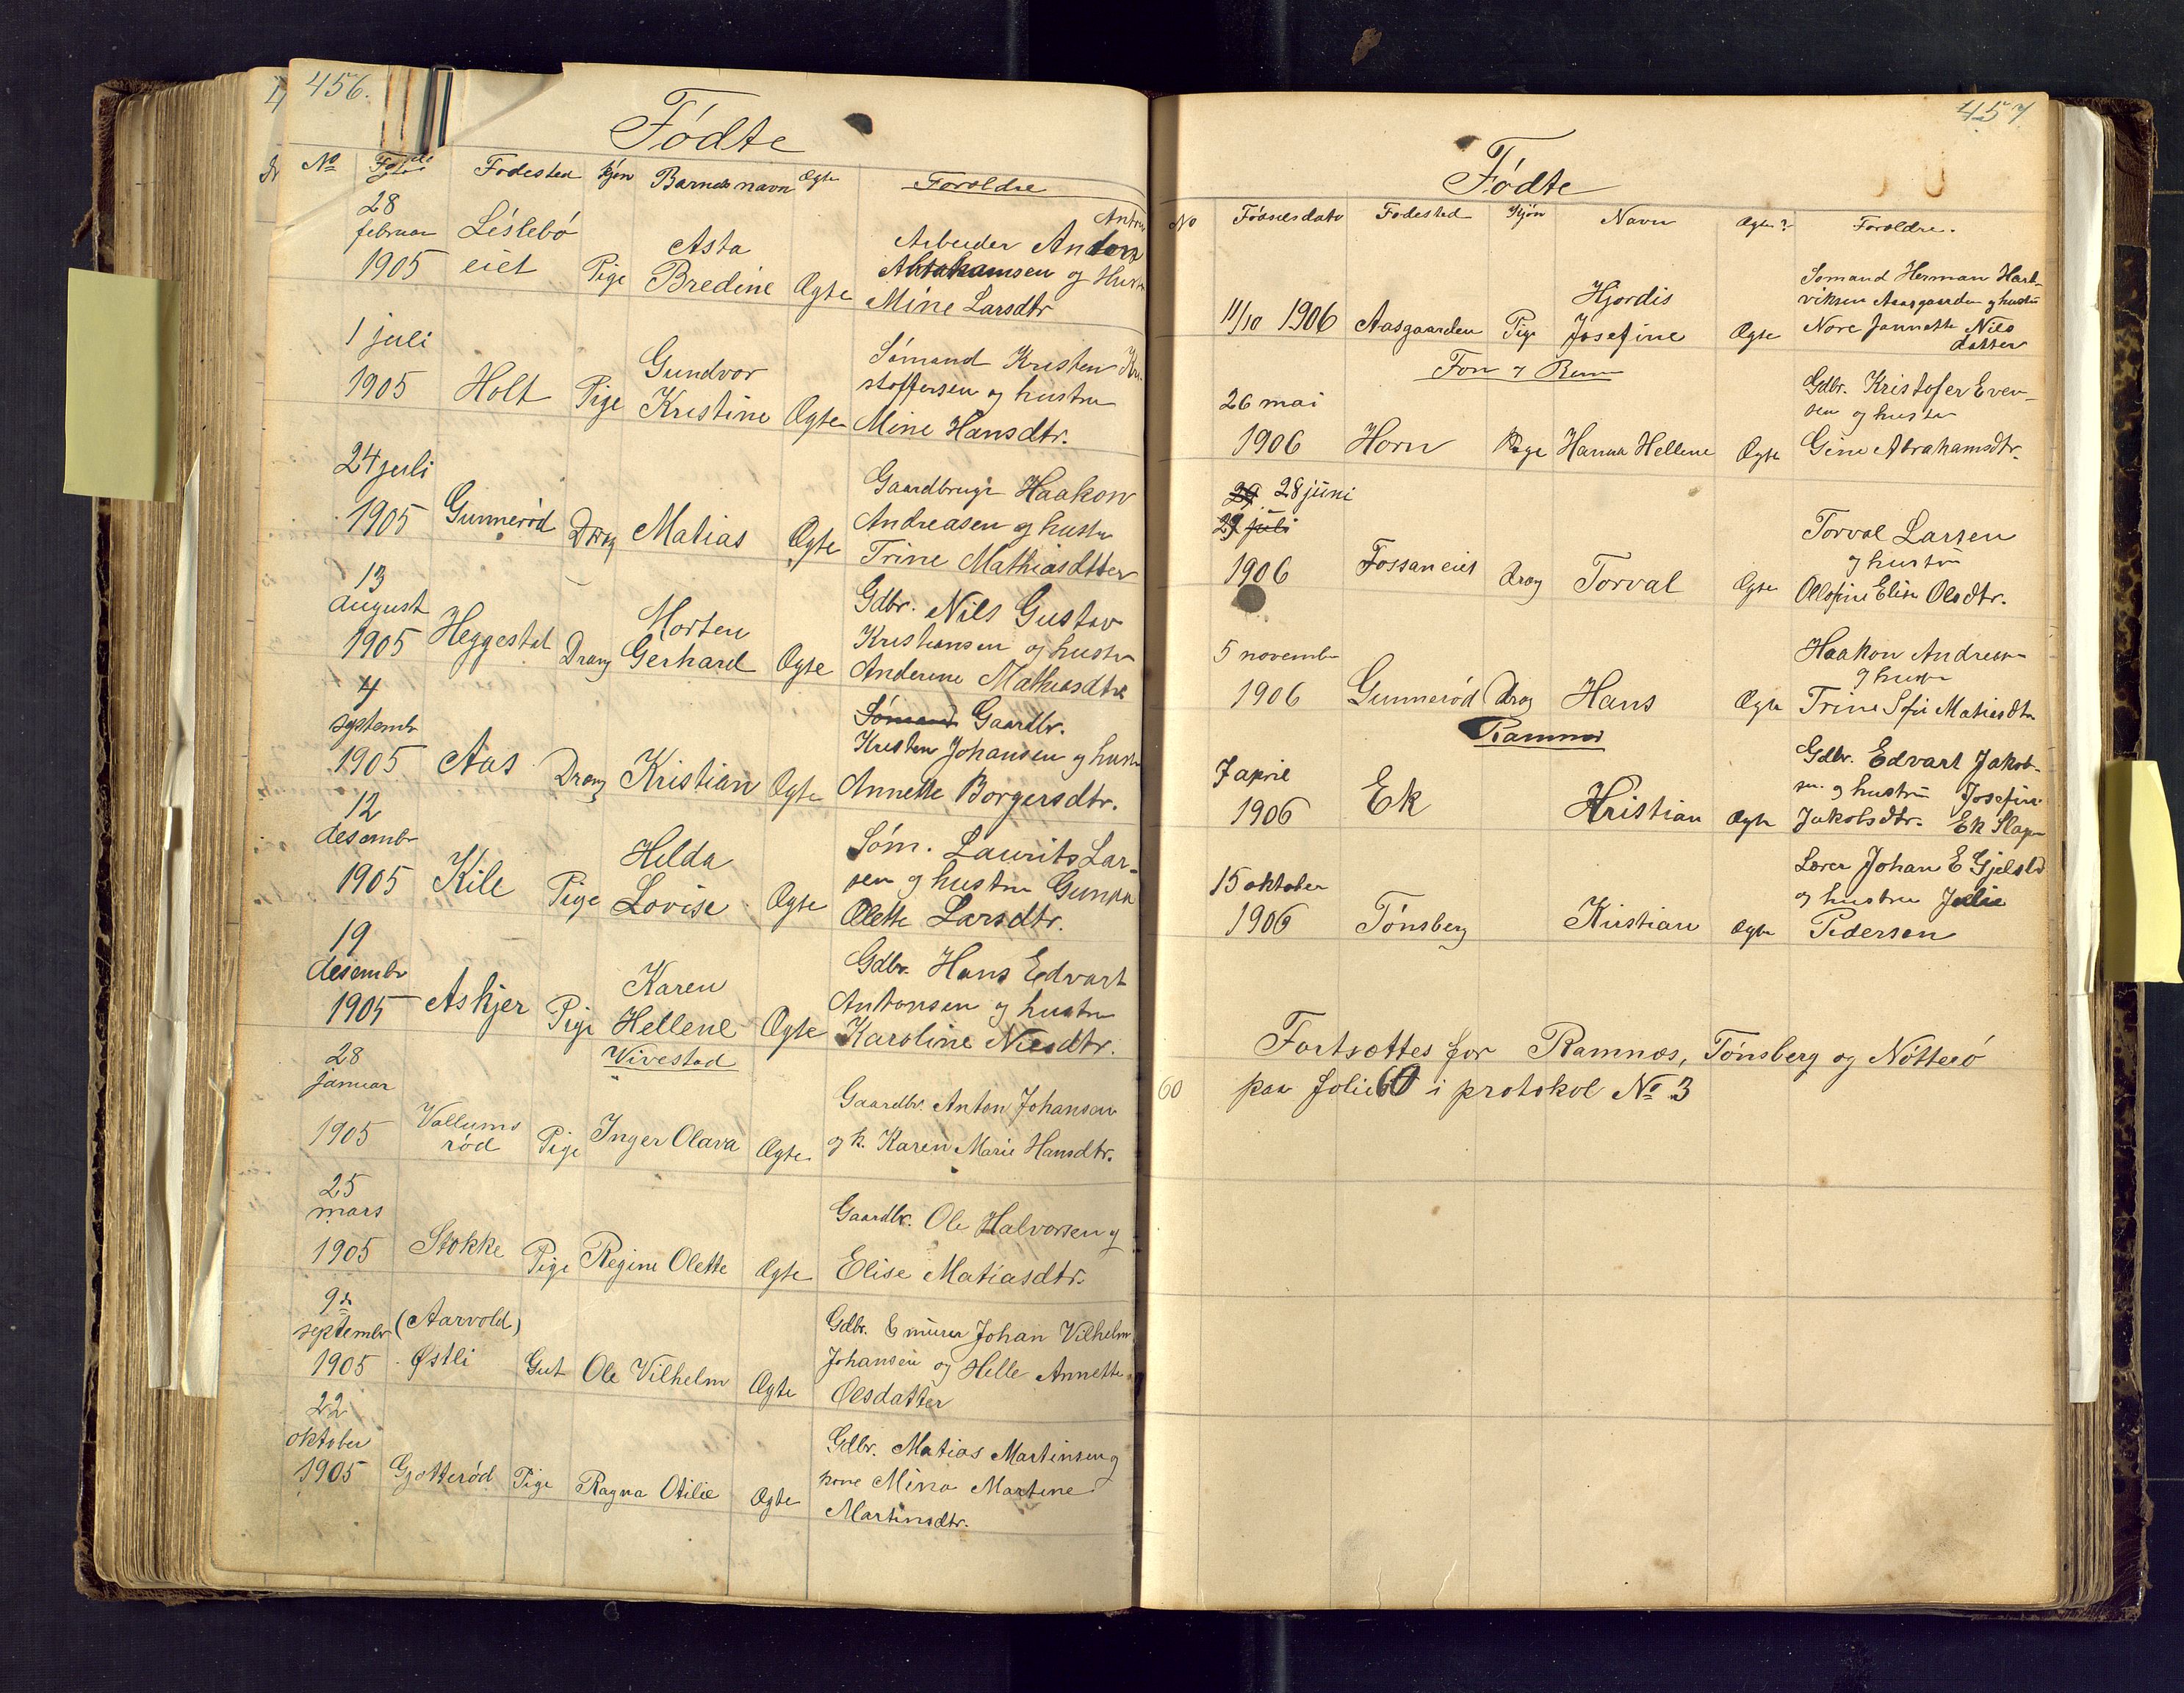 456.
Fødte
No Fødested Kjøn Barnets navn Ægte Forældre
28
februar Lislebø Anton
1905 eiet Pige Asta Bredine Ægte Arbeider Anton
Abrahamsen og Hustru
Mine Larsdtr
1 juli
1905 Holt Pige Gundvor Kristine Ægte Sømand Kristen Kri-
stoffersen og hustru
Mine Hansdtr.
24 juli
1905 Gunnerød Dreng Matias Ægte Gaardbruger Haakon
Andreasen og hustru
Trine Mathiasdtter
13
august
1905 Heggestad Dreng Morten Gerhard Ægte Gdbr. Nils Gustav
Kristiansen og hustru
Anderine Mathiasdtr
4
septembr
1905 Aas Dreng Kristian Ægte Sømand Gaardbr.
Kristen Johansen og hustru
Annette Borgersdtr.
12
desembr
1905 Kile Pige Hilda Lovise Ægte Søm. Laurits Lar-
sen og hustru Gunda
Olette Larsdtr.
19
desembr
1905 Askjer Pige Karen Hellene Ægte Gdbr. Hans Edvart
Antonsen og hustru
Karoline Nilsdtr.
Vivestad
28
januar
1905 Vallums
rød Pige Inger Olava Ægte Gaardbr. Anton Johansen
og h. Karen Marie Hansdtr.
25
mars
1905 Stokke Pige Regine Olette Ægte Gaardbr. Ole Halvorsen og
Elise Matiasdtr.
9de
septembr (Aarvold)
1905 Østli Gut Ole Vilhelm Ægte Gdbr. & murer Johan Vilhelm
Johansen og Helle Annette
Olsdatter
22
oktober
1905 Gjotterød Pige Ragna Otilie Ægte Gdbr. Matias Martinsen og
kone Mina Martine
Martinsdtr.
457.
Fødte
No Fødselsdato Fødested Kjøn Navn Ægte? Forældre.
11/10 1906 Aasgaarden Pige Hjordis Josefine Ægte Sømand Herman Hart-
viksen Aasgaarden og hustru
Nore Jannette Nils
datter
Fon & Ram
26 mai
1906 Horn Pige Hanna Hellene Ægte Gdbr. Kristofer Even-
sen og hustru
Gine Abrahamsdtr.
29 28 juni
29 juli
1906 Fossan eiet dreng Torval Ægte Torval Larsen
og hustru
Ollefine Elise Olsdtr.
5 novembr
1906 Gunnerød Dreng Hans Ægte Haakon Andreasen
og hustru
Trine Sofie Matiasdtr
Ramnes
7 april
1906 Ek Kristian Ægte Gdbr. Edvart Jakob-
sen og hustru Josefine
Jakobsdtr. Ek
15 oktober
1906 Tønsberg Kristian Ægte Lærer Johan E Gjelstd
og hustru Julie
Pedersen
Fortsættes for Ramnes, Tønsberg og Nøtterø
60 paa folie 60 i protokol No 3